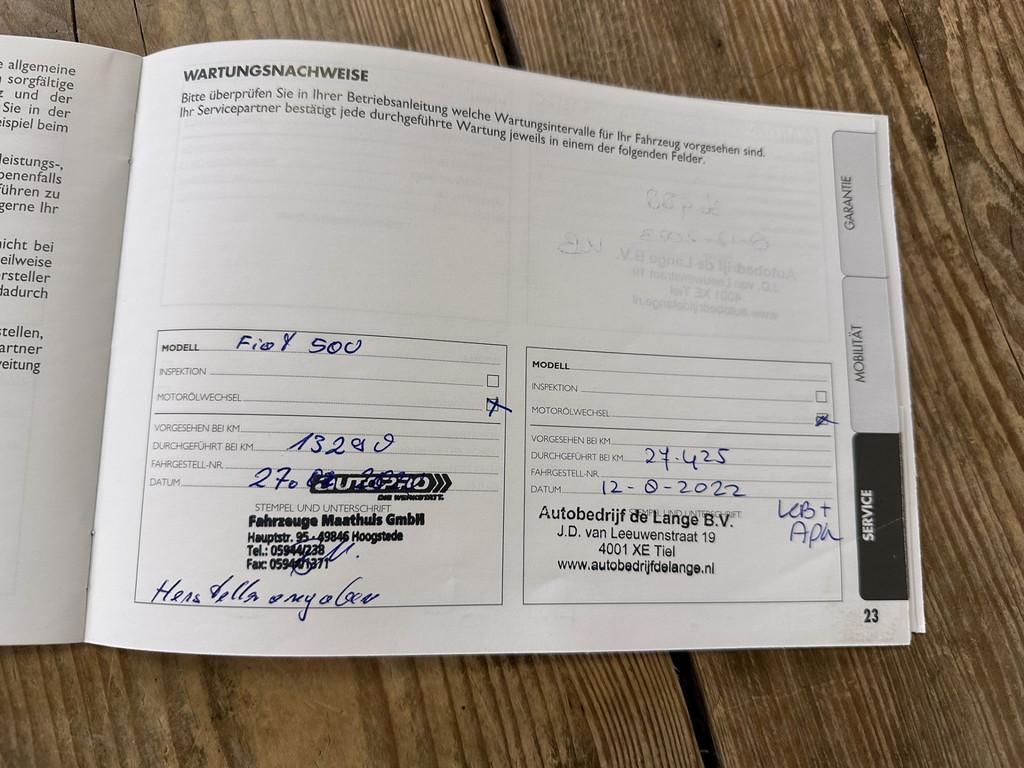 e allgemeine
sorgfältige
z und der
Sie in der
eispiel beim
leistungs-,
benenfalls
führen zu
gerne Ihr
nicht bei
eilweise
ersteller
dadurch
stellen,
artner
weitung
WARTUNGSNACHWEISE
Bitte überprüfen Sie in Ihrer Betriebsanleitung welche Wartungsintervalle für Ihr Fahrzeug vorgesehen sind.
Ihr Servicepartner bestätigt jede durchgeführte Wartung jeweils in einem der folgenden Felder.
MODELL Fiat 500
INSPEKTION
MOTORÖLWECHSEL
VORGESEHEN BEI KM
DURCHGEFÜHRT BEI KM 13290
FAHRGESTELL-NR.
DATUM 27.
AUTOPRO
DIE WERKSTATT.
STEMPEL UND UNTERSCHRIFT
Fahrzeuge Maathuis GmbH
Hauptstr. 95 · 49846 Hoogstede
Tel.: 05944/238
Fax: 05944/1371
Herstellerangaben
MODELL
INSPEKTION
MOTORÖLWECHSEL
VORGESEHEN BEI KM
DURCHGEFÜHRT BEI KM 27.425
FAHRGESTELL-NR.
DATUM 12-8-2022
STEMPEL UND UNTERSCHRIFT
Autobedrijf de Lange B.V.
J.D. van Leeuwenstraat 19
4001 XE Tiel
www.autobedrijfdelange.nl
GARANTIE
MOBILITÄT
SERVICE
23